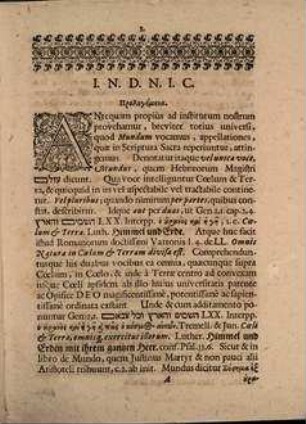 I. N. D. N. I. C.
Προλεγόμενα.
ANtequam propius ad institutum nostrum
provehamur, breviter totius universi,
quod Mundum vocamus, appellationes,
quæ in Scriptura Sacra reperiuntur, attin-
gemus. Denotatur itaque vel unica voce,
Mundus, quem Hebræorum Magistri
עולם dicunt. Qua voce intelliguntur Cœlum & Ter-
ra, & quicquid in iis vel aspectabile vel tractabile contine-
tur. Vel pluribus; quando nimirum per partes, quibus con-
stat, describitur. Idque aut per duas, ut Gen. 2.1. cap. 2.4.
השמים והארץ LXX. Interpp. ὁ οὐρανὸς καὶ ἡ γῆ, i. e. Cœ-
lum & Terra. Luth. Himmel und Erde. Atque huc facit
illud Romanorum doctissimi Varronis l. 4. de LL. Omnis
Natura in Cœlum & Terram divisa est. Comprehendun-
turque his duabus vocibus ea omnia, quæcunque supra
Cœlum, in Cœlo, & inde à Terra centro ad convexam
usque Cœli apsidem ab illo hujus universitatis parente
ac Opifice DEO magnificentissimè, potentissimè ac sapien-
tissimè ordinata exstant. Unde & cum additamento po-
nuntur Gen. 2.1. השמים והארץ וכל צבאם LXX. Interpp.
ὁ οὐρανὸς καὶ ἡ γῆ καὶ πᾶς ὁ κόσμος αὐτῶν. Tremell. & Jun. Cœli
& Terra, omnisq; exercitus illorum. Luther. Himmel und
Erden mit ihrem gantzen Heer. conf. Psal. 33.6. Sicur & in
libro de Mundo, quem Justinus Martyr & non pauci alii
Aristoteli tribuunt, c. 2. ab init. Mundus dicitur Σύστημα ἐξ
A